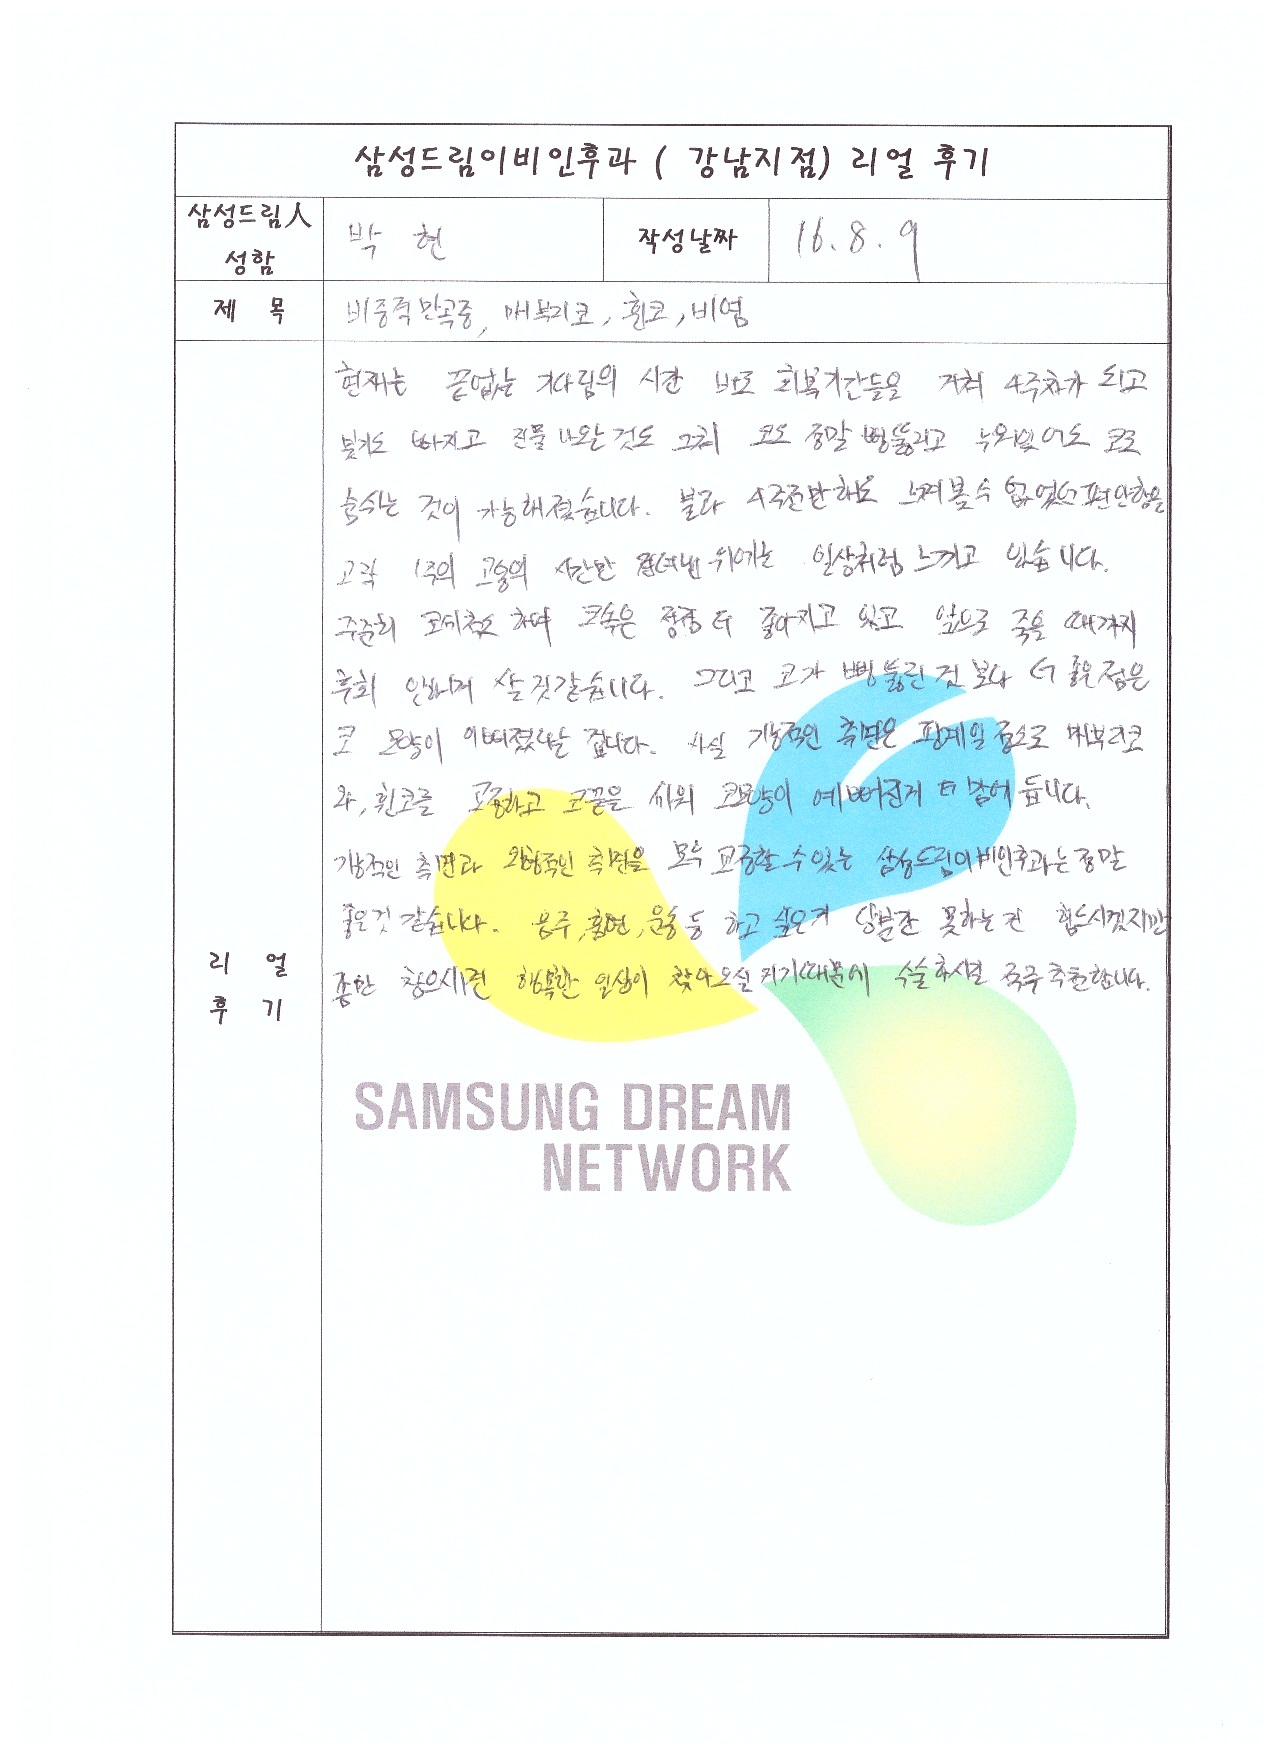 삼성드림이비인후과 ( 강남지점) 리얼 후기
삼성드림人 성함
박 현
작성날짜
16. 8. 9
제 목
비중격만곡증, 매부리코, 휜코, 비염
리 얼 후 기
현재는 끝없는 기다림의 시간 바로 회복기간들을 거쳐 4주차가 되고
붓기도 빠지고 진물 나오는 것도 그쳐 코도 정말 뻥뚫리고 누워있어도 코로
숨쉬는 것이 가능해졌습니다. 불과 4주전만해도 느껴볼 수 없었던 편안함을
고작 1주의 고통의 시간만 뒤에는 일상처럼 느끼고 있습니다.
꾸준히 코세척도 하며 코속은 점점 더 좋아지고 있고 앞으로 죽을 때까지
후회 안하며 살 것 같습니다. 그리고 코가 뻥 뚫린 것 보다 더 좋은점은
코 모양이 이뻐졌다는 겁니다. 사실 기능적인 측면은 매부리코
와, 휜코를 교정하고 코끝을 세워 코모양이 예뻐진게 더 맘에 듭니다.
기능적인 측면과 외형적인 측면을 모두 교정할 수 있는 삼성드림이비인후과는 정말
좋은것 같습니다. 음주, 흡연, 운동 등 하고 싶은거 당분간 못하는건 힘드시겠지만
좀만 참으시면 행복한 일상이 찾아오실 거기때문에 수술하시길 적극 추천합니다.
SAMSUNG DREAM
NETWORK